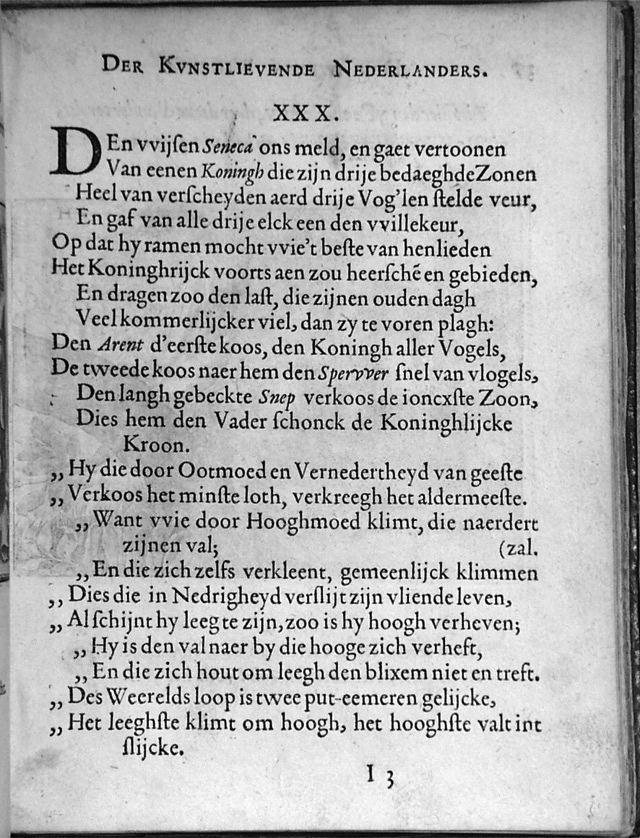 DER KVNSTLIEVENDE NEDERLANDERS.
XXX.
DEn vvijſen Seneca ons meld, en gaet vertoonen
Van eenen Koningh die zijn drije bedaeghde Zonen
Heel van verſcheyden aerd drije Vog'len ſtelde veur,
En gaf van alle drije elck een den vvillekeur,
Op dat hy ramen mocht vvie't beſte van henlieden
Het Koninghrijck voorts aen zou heerſchẽ en gebieden,
En dragen zoo den laſt, die zijnen ouden dagh
Veel kommerlijcker viel, dan zy te voren plagh:
Den Arent d'eerſte koos, den Koningh aller Vogels,
De tweede koos naer hem den Spervver ſnel van vlogels,
Den langh gebeckte Snep verkoos de ioncxſte Zoon,
Dies hem den Vader ſchonck de Koninghlijcke
Kroon.
„Hy die door Ootmoed en Vernedertheyd van geeſte
„Verkoos het minſte loth, verkreegh het aldermeeſte.
„Want vvie door Hooghmoed klimt, die naerdert
zijnen val; (zal.
„En die zich zelfs verkleent, gemeenlijck klimmen
„Dies die in Nedrigheyd verſlijt zijn vliende leven,
„Al ſchijnt hy leeg te zijn, zoo is hy hoogh verheven;
„Hy is den val naer by die hooge zich verheft,
„En die zich hout om leegh den blixem niet en treft.
„Des Weerelds loop is twee put-eemeren gelijcke,
„Het leeghſte klimt om hoogh, het hooghſte valt int
ſlijcke.
I 3